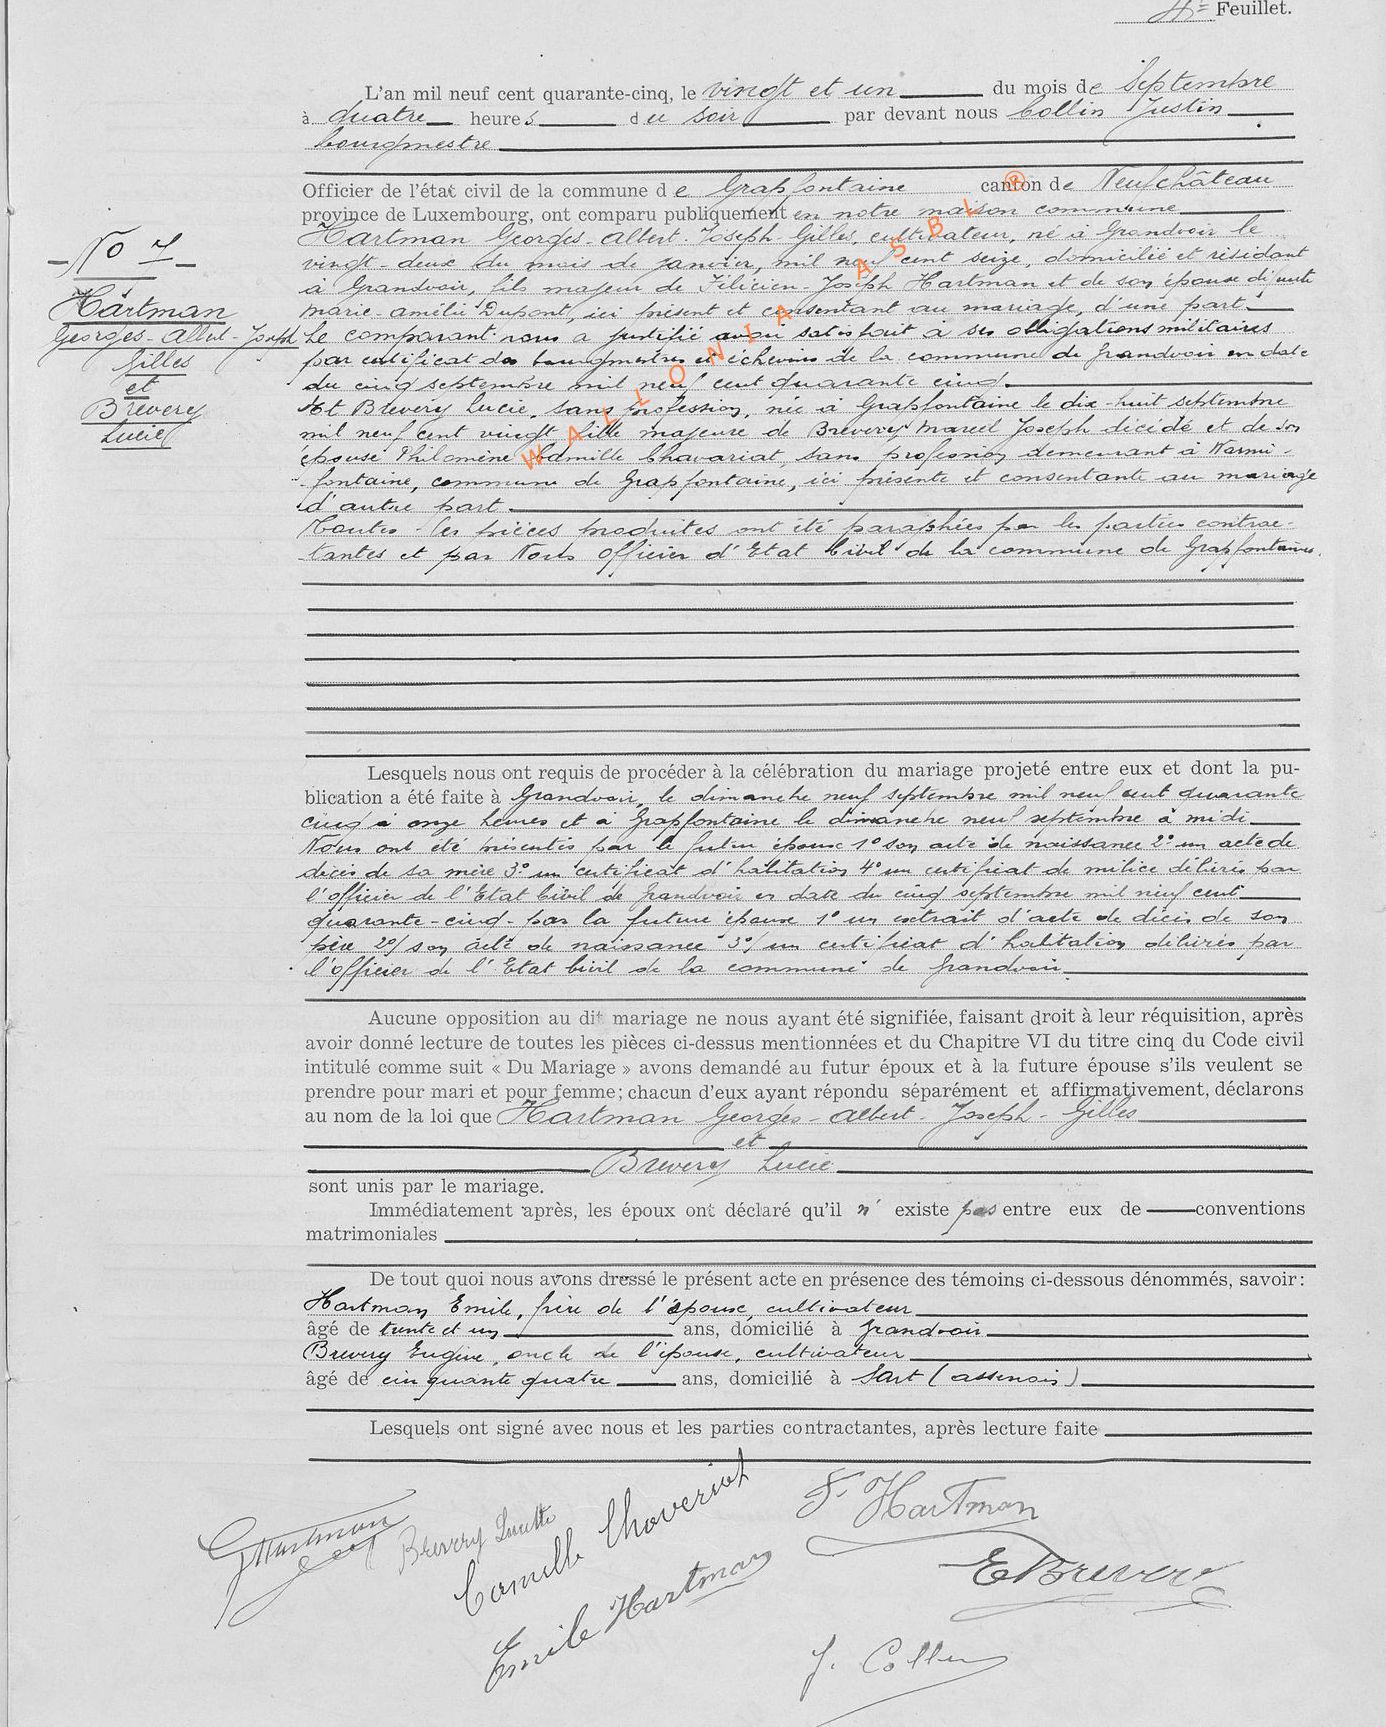 4e Feuillet.
L'an mil neuf cent quarante-cinq, le vingt et un du mois de Septembre
à quatre heures du soir par devant nous Collin Justin
bourgmestre
Officier de l'état civil de la commune de Grapfontaine canton de Neufchâteau
province de Luxembourg, ont comparu publiquement en notre maison commune
No 7
Hartman
Georges-Albert-Joseph
Gilles
et
Brevery
Lucie
Hartman Georges-Albert-Joseph-Gilles, cultivateur, né à Grandvoir le
vingt-deux du mois de janvier, mil neuf cent seize, domicilié et résidant
à Grandvoir, fils majeur de Félicien-Joseph Hartman et de son épouse défunte
Marie-Amélie Dupont, ici présent et consentant au mariage, d'une part.
Le comparant nous a justifié avoir satisfait à ses obligations militaires
par certificat des bourgmestres et échevins de la commune de Grandvoir en date
du cinq septembre mil neuf cent quarante cinq.
Et Brevery Lucie, sans profession, née à Grapfontaine le dix-huit septembre
mil neuf cent vingt fille majeure de Brevery Marcel Joseph décédé et de son
épouse Philomène Camille Chavariat, sans profession demeurant à Warmi-
fontaine, commune de Grapfontaine, ici présente et consentante au mariage
d'autre part.
Toutes les pièces produites ont été paraphées par les parties contrac-
tantes et par Nous Officier d'Etat Civil de la commune de Grapfontaine.
WALLONIA ASBL ®
Lesquels nous ont requis de procéder à la célébration du mariage projeté entre eux et dont la pu-
blication a été faite à Grandvoir, le dimanche neuf septembre mil neuf cent quarante
cinq à onze heures et à Grapfontaine le dimanche neuf septembre à midi
Nous ont été présentés par le futur époux 1° son acte de naissance 2° un acte de
décès de sa mère 3° un certificat d'habitation 4° un certificat de milice délivrés par
l'officier de l'Etat Civil de Grandvoir en date du cinq septembre mil neuf cent
quarante-cinq - par la future épouse 1° un extrait d'acte de décès de son
père 2°/ son acte de naissance 3°/ un certificat d'habitation délivrés par
l'officier de l'Etat Civil de la commune de Grandvoir
Aucune opposition au dit mariage ne nous ayant été signifiée, faisant droit à leur réquisition, après
avoir donné lecture de toutes les pièces ci-dessus mentionnées et du Chapitre VI du titre cinq du Code civil
intitulé comme suit « Du Mariage » avons demandé au futur époux et à la future épouse s'ils veulent se
prendre pour mari et pour femme; chacun d'eux ayant répondu séparément et affirmativement, déclarons
au nom de la loi que Hartman Georges-Albert-Joseph-Gilles
et
Brevery Lucie
sont unis par le mariage.
Immédiatement après, les époux ont déclaré qu'il n'existe pas entre eux de conventions
matrimoniales
De tout quoi nous avons dressé le présent acte en présence des témoins ci-dessous dénommés, savoir:
Hartman Emile, frère de l'épouse, cultivateur
âgé de trente et un ans, domicilié à Grandvoir
Brevery Eugène, oncle de l'épouse, cultivateur
âgé de cinquante quatre ans, domicilié à Sart (assenois)
Lesquels ont signé avec nous et les parties contractantes, après lecture faite
GHartman
Brevery Lucette
Camille Chaveriat
F. Hartman
Emile Hartman
E Brevery
J. Collin